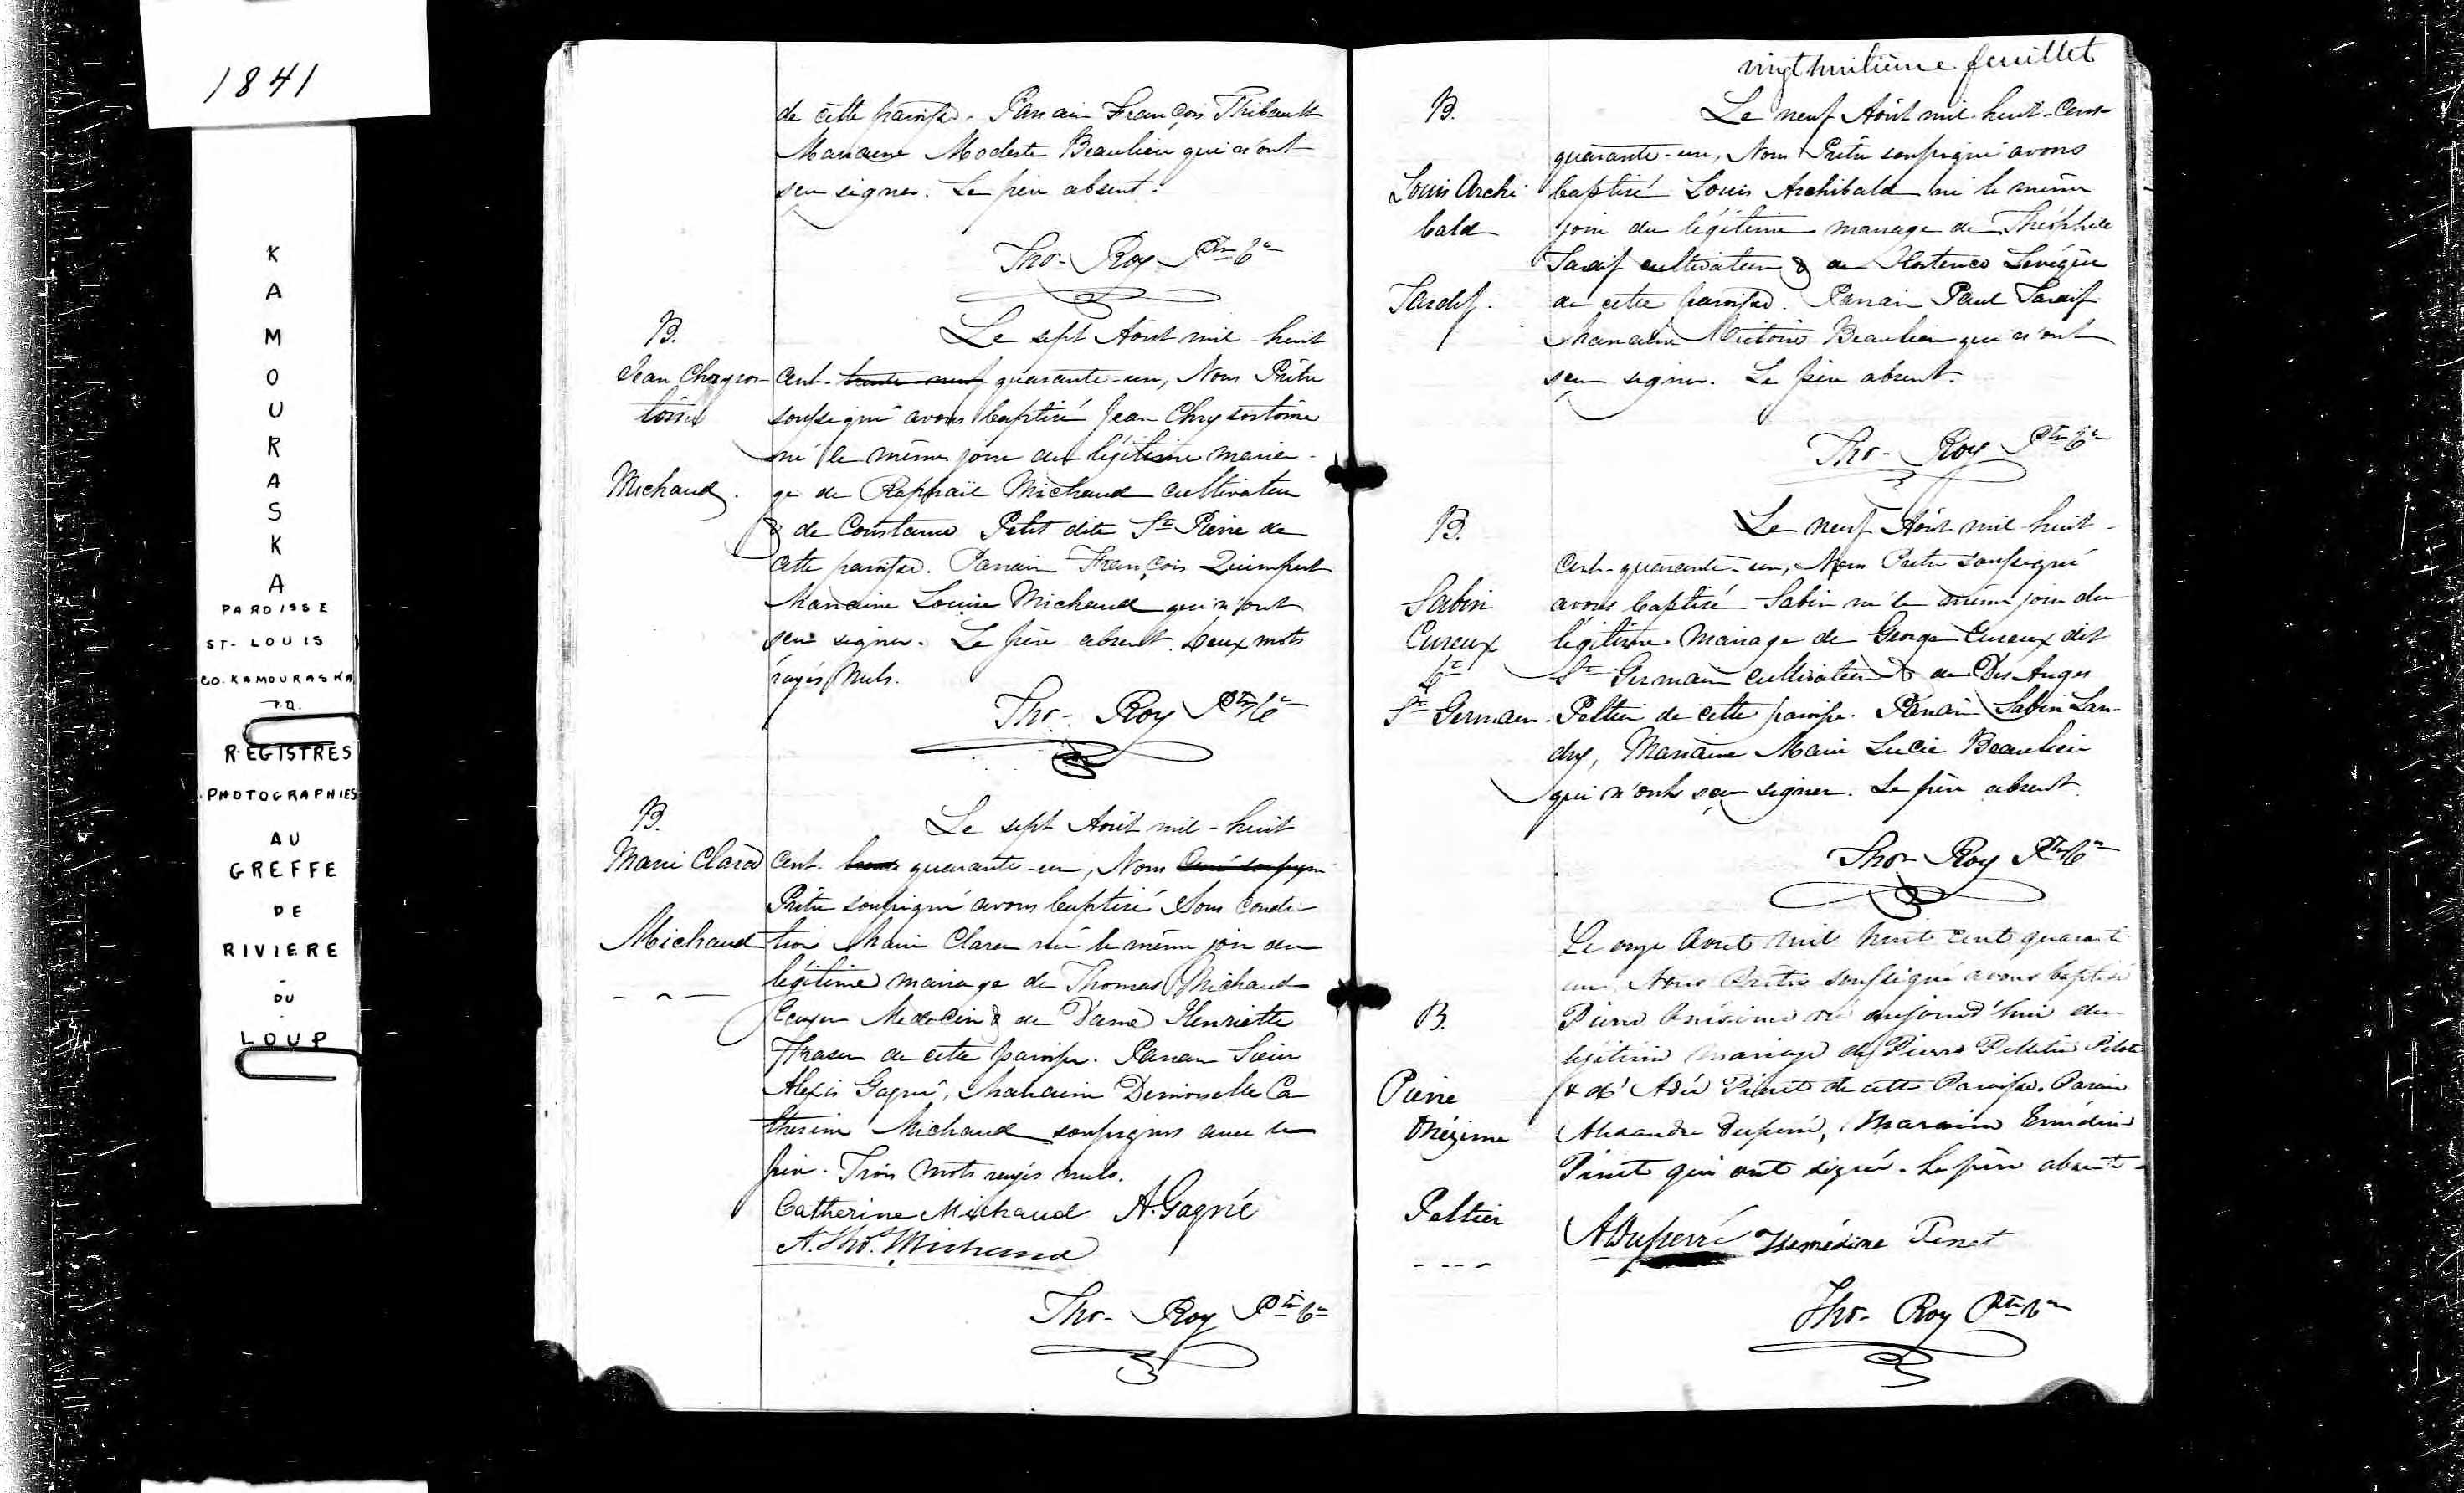 1841
KAMOURASKA
PAROISSE
ST-LOUIS
CO. KAMOURASKA
P.Q.
REGISTRES
PHOTOGRAPHIES
AU
GREFFE
DE
RIVIERE
-
DU
-
LOUP
de cette paroisse. Parrain François Thibault
Maraine Modeste Beaulieu qui n'ont
sçu signer. Le père absent.
Tho- Roy Ptre Cé
B.
Jean Chrysos-
tôme
Michaud.
Le sept Août mil-huit
cent-trente-neuf quarante-un, Nous Prêtre
soussigné avons baptisé Jean Chrysostôme
né le même jour du légitime maria-
ge de Raphaël Michaud cultivateur
& de Constance Petit dite St Pierre de
cette paroisse. Parrain François Quimpert
Maraine Louise Michaud qui n'ont
sçu signer. Le père absent. Deux mots
rayés nuls.
Tho- Roy Ptre Cé
B.
Marie Clara
Michaud
Le sept Août mil-huit
cent-trente quarante-un, Nous Curé soussign
Prêtre soussigné avons baptisé sous condi-
tion Marie Clara née le même jour du
légitime mariage de Thomas Michaud
Ecuyer Médecin & de Dame Henriette
Fraser de cette paroisse. Parrain Sieur
Alexis Gagné, Maraine Demoiselle Ca
therine Michaud soussignés avec le
père. Trois mots rayés nuls.
Catherine Michaud A. Gagné
A. Tho. Michaud
Tho- Roy Ptre Cé
vingt huitième feuillet
B.
Louis Archi
bald
Tardif.
Le neuf Août mil-huit-cent-
quarante-un, Nous Prêtre soussigné avons
baptisé Louis Archibald né le même
jour du légitime mariage de Théophile
Tardif cultivateur & de Hortence Levêque
de cette paroisse. Parrain Paul Tardif
Maraine Victoire Beaulieu qui n'ont
sçu signer. Le père absent.
Tho- Roy Ptre Cé
B.
Sabin
Cureux
dt
St Germain.
Le neuf Août mil-huit-
cent-quarante-un, Nous Prêtre soussigné
avons baptisé Sabin né le même jour du
légitime mariage de George Cureux dit
St Germain cultivateur & de Des Anges
Peltier de cette paroisse. Parrain Sabin Lan-
dry, Maraine Marie Lucie Beaulieu
qui n'ont sçu signer. Le père absent.
Tho- Roy Ptre Cé
B.
Pierre
Onézime
Peltier
Le onze Aout mil huit cent quarante
un Nous Prêtre soussigné avons baptisé
Pierre Onésime né aujourd'hui du
légitime mariage de Pierre Pelletier Pilote
& d'Adée Pinet de cette Paroisse. Parain
Alexandre Duperré, Maraine Emédine
Pinet qui ont signé. Le père absent.
ADuperré Pinet
Tho- Roy Ptre Cé